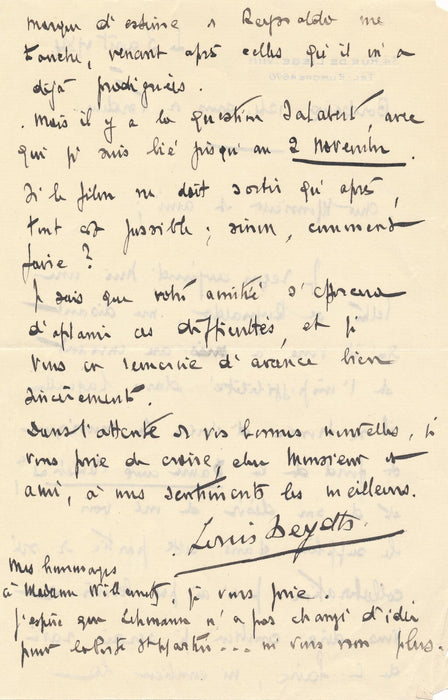 marque d'estime de Reynaldo me
touche, venant après celles qu'il m'a
déjà prodiguées.
. Mais il y a la question Salabert, avec
qui je suis lié jusqu'au 2 novembre.
Si le film ne doit sortir qu'après,
tout est possible ; sinon, comment
faire ?
Je sais que votre amitié s'efforcera
d'aplanir ces difficultés, et je
vous en remercie d'avance bien
sincèrement.
Dans l'attente de vos bonnes nouvelles, je
vous prie de croire, cher Monsieur et
ami, à mes sentiments les meilleurs.
Louis Beydts
Mes hommages
à Madame Willemetz, je vous prie.
J'espère que Lehmann n'a pas changé d'idée
pour la Porte St Martin... ni vous non plus.